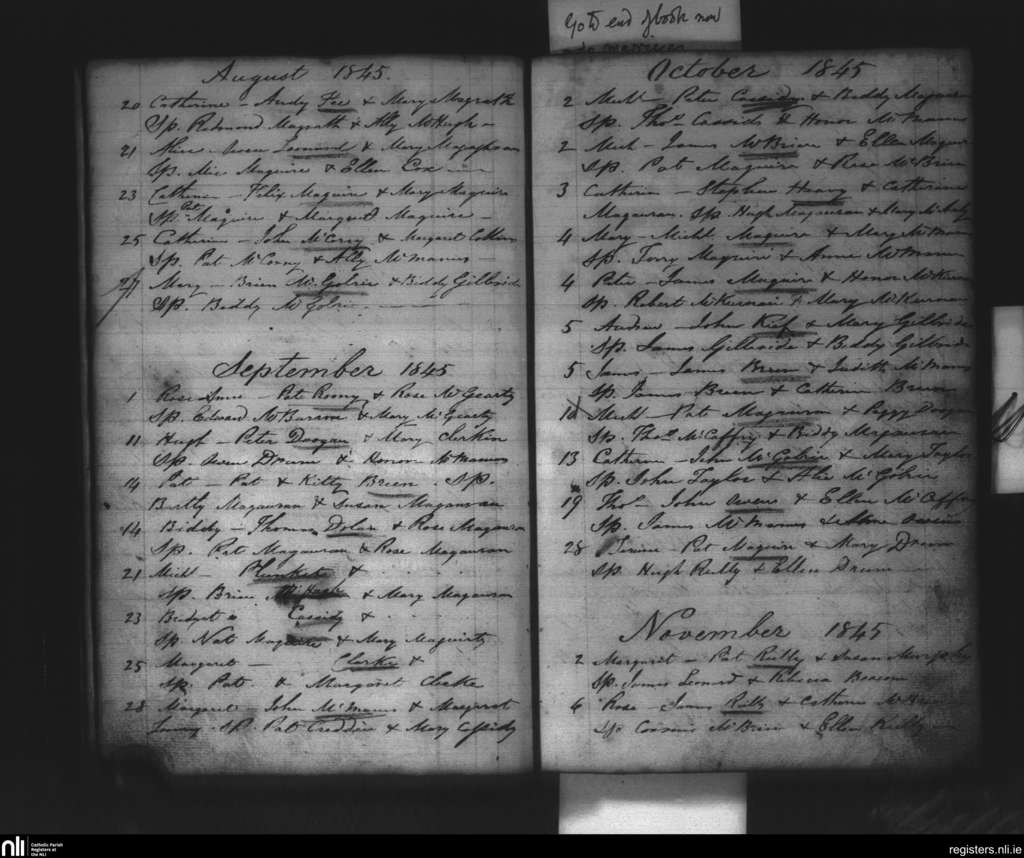 Go to end of book now
August 1845.
20 Catherine - Andy Fee & Mary Magrath
Sp. Redmond Magrath & Ally McHugh -
21 Alice - Owen Leonard & Mary
Sp. Mic Maguire & Ellen Cox
23 Catherine - Felix Maguire & Mary Maguire
Sp. Pat Maguire & Margaret Maguire -
25 Catherine - John & Margaret
Sp. Pat & Ally McManus -
27 Mary - Brien McGolric & Biddy Gilbride
Sp. Biddy
September 1845
1 Rose Anne - Pat Roony & Rose McGearty
Sp. Edward & Mary McGearty
11 Hugh - Peter Doogan & Mary Clerkin
Sp. Owen Drum & Honor McManus
14 Pat - Pat & Kitty Breen. Sp.
Magauran & Susan Magauran
14 Biddy - Thomas Dolan & Rose Magauran
Sp. Pat Magauran & Rose Magauran
21 Mich - Plunket &
Sp. Brien McHugh & Mary Magauran
23 Bridget Cassidy &
Sp. Nat & Mary
25 Margaret - Clarke &
Sp. Pat & Margaret Clarke
28 Margaret - John McManus & Margaret
Sp. Pat & Mary Cassidy
October 1845
2 Michl - Peter Cassidy & Biddy Magauran
Sp. Thos Cassidy & Honor McManus
2 Mich - James McBrien & Ellen Maguire
Sp. Pat Maguire & Rose McBrien
3 Catherin - Stephen & Catherine
Magauran. Sp. Hugh Magauran & Mary
4 Mary - Michl Maguire & Mary
Sp. Terry Maguire & Anne McManus
4 Peter - James Maguire & Honor McKiernan
Sp. Robert McKiernan & Mary McKiernan
5 Andrew - John & Mary Gilbride
Sp. James Gilbride & Biddy Gilbride
5 James - James Breen & Judith McManus
Sp. James Breen & Catherin Breen
10 Michl - Pat Magauran & Peggy
Sp. Thos McCaffry & Biddy Magauran
13 Catherin - John McGolric & Mary Taylor
Sp. John Taylor & McGolric
19 Thos - John Owens & Ellen McCaffry
Sp. James McManus & Owens
28 - Pat Maguire & Mary Drum
Sp. Hugh Reilly & Ellen Drum
November 1845
2 Margaret - Pat Reilly & Susan
Sp. James Leonard & Rebecca
6 Rose - James Reilly & Catherine McBrien
Sp. McBrien & Ellen Reilly
nli Catholic Parish
Registers at
the NLI
registers.nli.ie